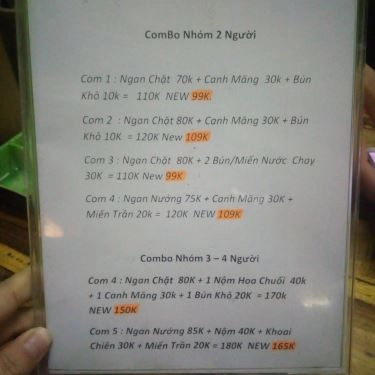 ComBo Nhóm 2 Người
Com 1 : Ngan Chặt 70k + Canh Măng 30k + Bún
Khô 10k = 110K NEW 99K
Com 2 : Ngan Chặt 80K + Canh Măng 30K + Bún
Khô 10K = 120K New 109K
Com 3 : Ngan Chặt 80K + 2 Bún/Miến Nước Chay
30K = 110K New 99K
Com 4 : Ngan Nướng 75K + Canh Măng 30K +
Miến Trần 20k = 120K NEW 109K
Combo Nhóm 3 – 4 Người
Com 4 : Ngan Chặt 80K + 1 Nộm Hoa Chuối 40k
+ 1 Canh Măng 30k + 1 Bún Khô 20K = 170k
NEW 150K
Com 5 : Ngan Nướng 85K + Nộm 40K + Khoai
Chiên 30K + Miến Trần 20K = 180K NEW 165K